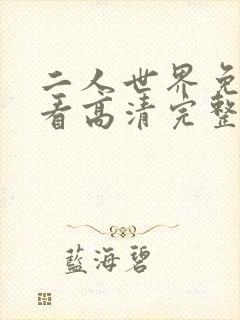 二人世界免
看高清完整
藍海碧